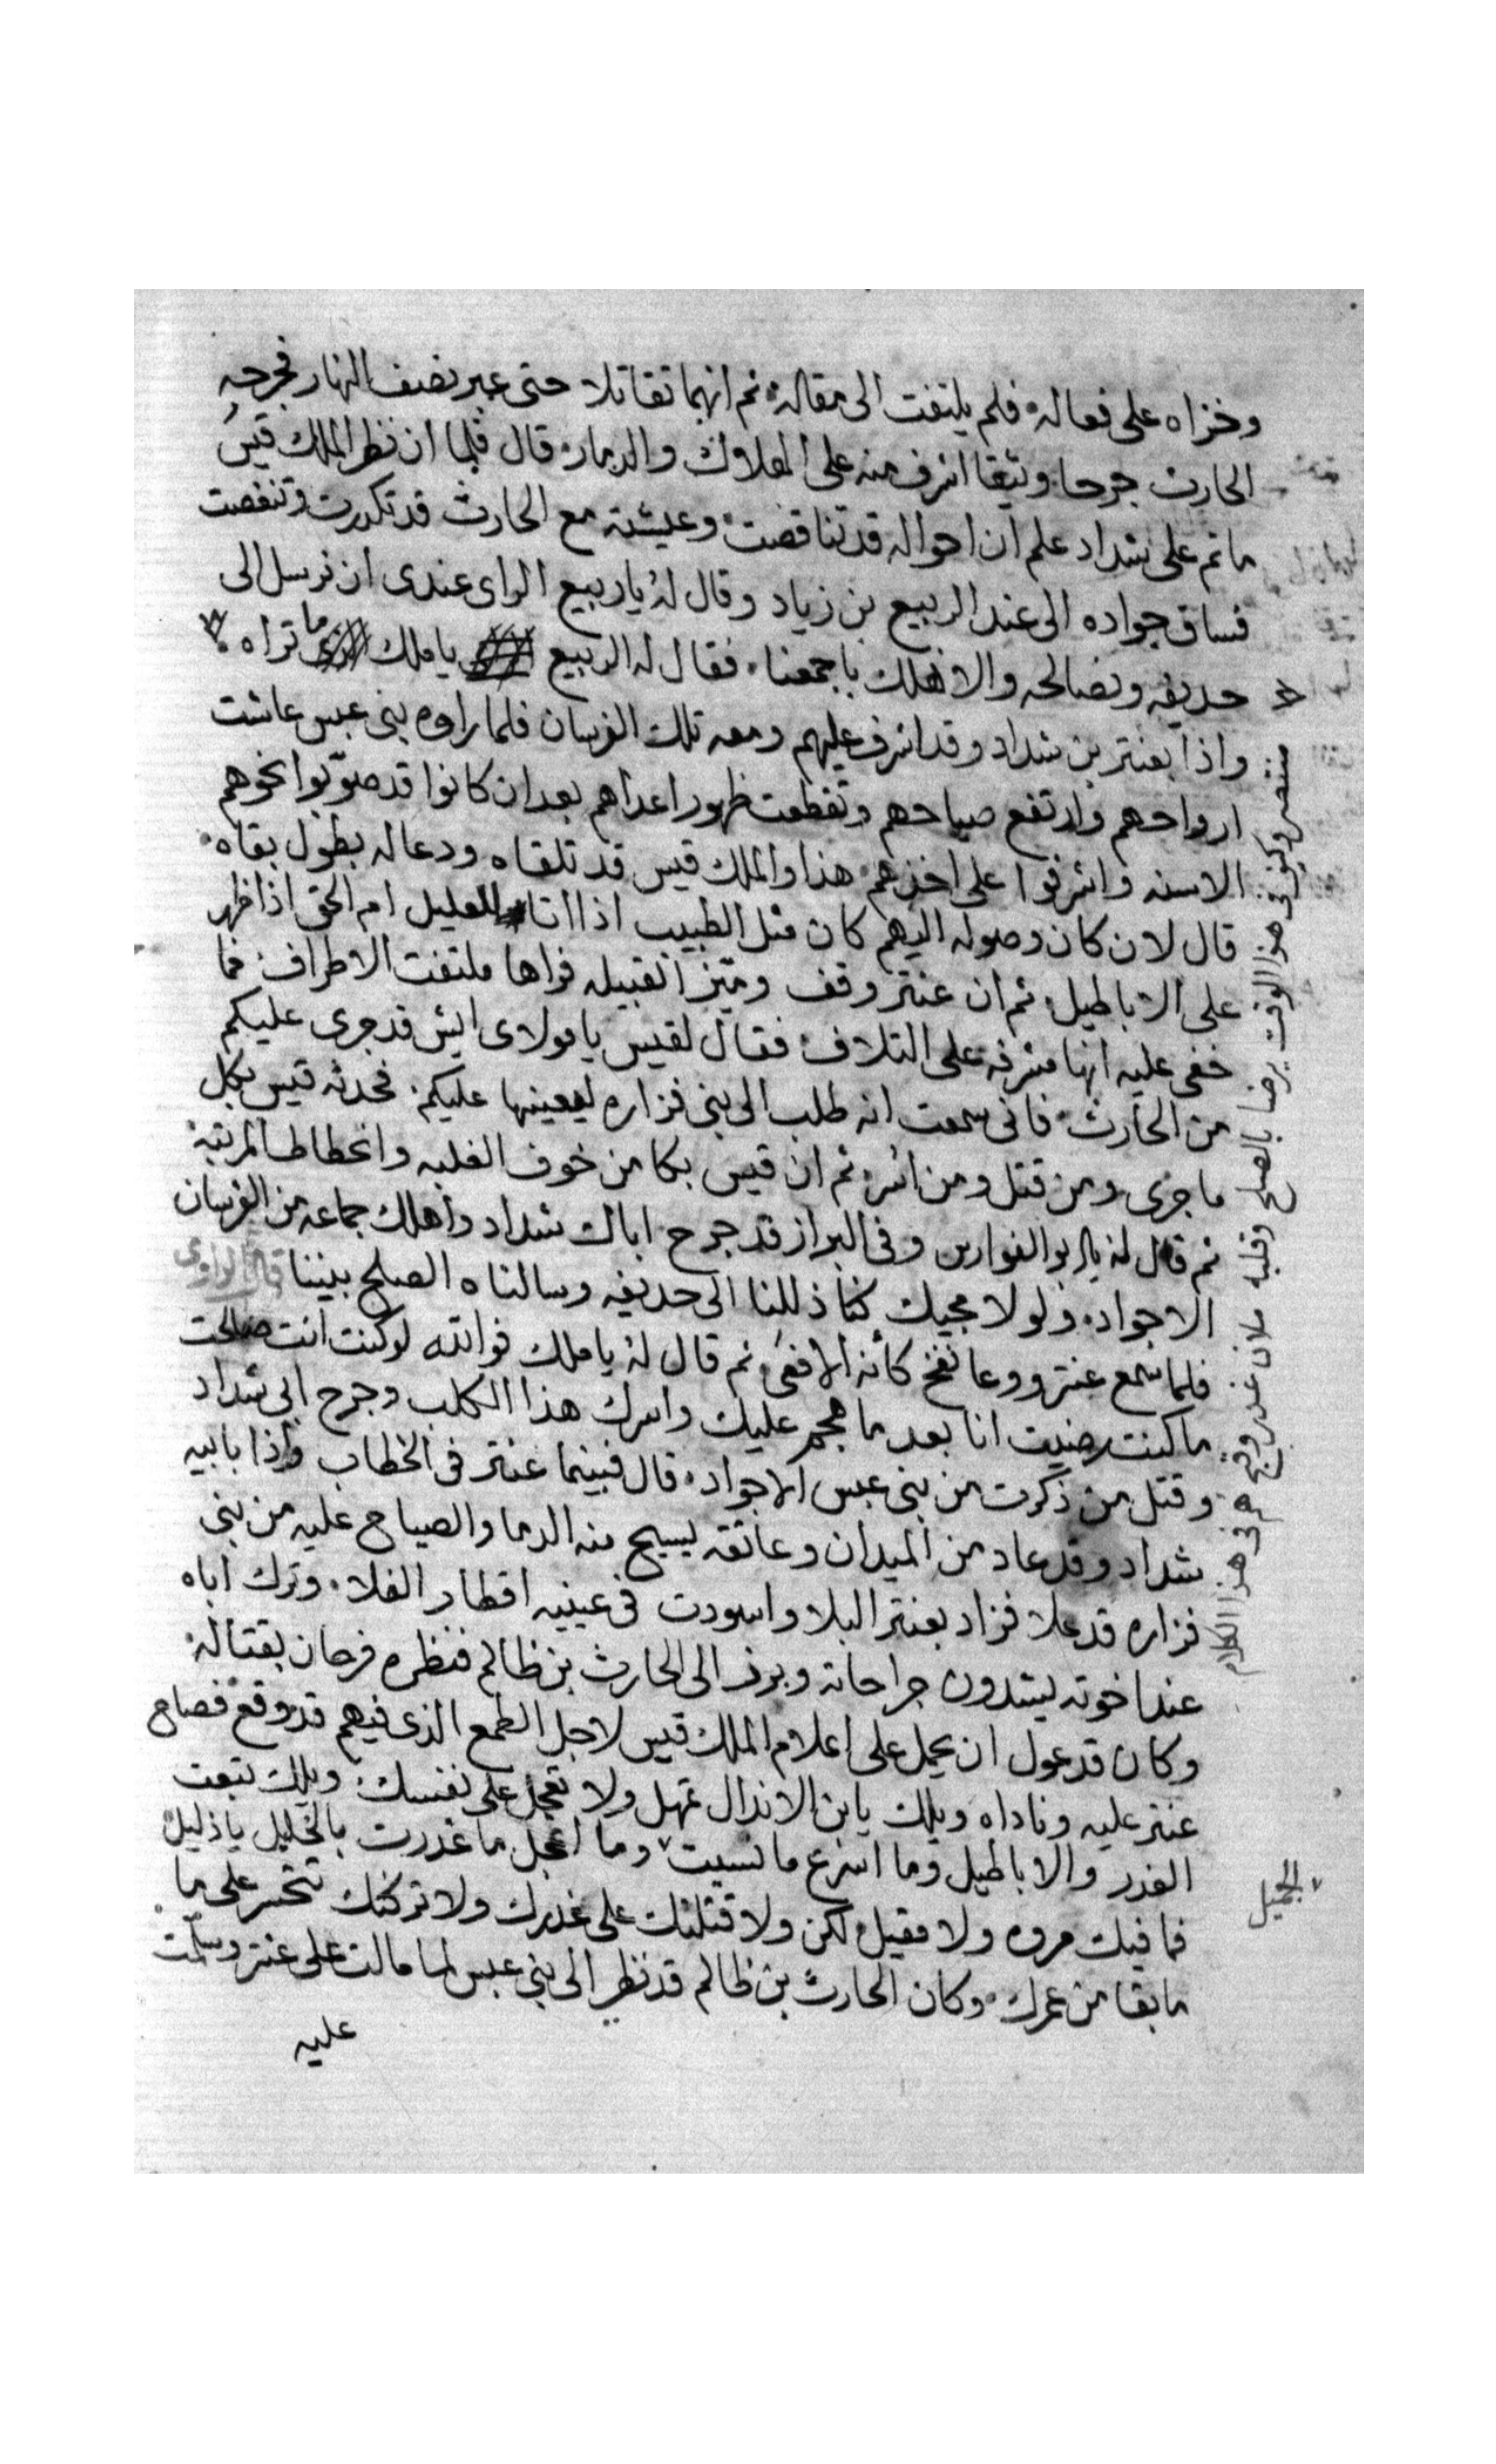 وخزاه على فعاله فلم يلتفت الى مقاله ثم انهما تقاتلا حتى عبر نصف النهار فجرحه
الحارث جرحا وثيقا اشرف منه على الهلاك والدمار قال فلما ان نظر الملك قيس
ما تم على شداد علم ان احواله قد تناقضت وعيشته مع الحارث قد تكدرت وتنغصت
فساق جواده الى عند الربيع بن زياد وقال له يا ربيع الراى عندى ان نرسل الى
حديفه ونصالحه والا نهلك باجمعنا فقال له الربيع يا ملك ما تراه
واذا بعنتر بن شداد وقد اشرف عليهم ومعه تلك الفرسان فلما راوه بنى عبس عاشت
ارواحهم وارتفع صياحهم وتقطعت ظهور اعداهم بعد ان كانوا قد صوبوا نحوهم
الاسنه واشرفوا على اخذهم هذا والملك قيس قد تلقاه ودعا له بطول بقاه
قال لان كان وصوله اليهم كان مثل الطبيب اذا اتا العليل ام الحق اذا ظهر
على الاباطيل ثم ان عنتر وقف وميز القبيله فراها ملتفت الاطراف فما
خفى عليه انها مشرفه على التلاف فقال لقيس يا مولاى ايش قد جرى عليكم
من الحارث فانى سمعت انه طلب الى بنى فزاره ليعينها عليكم فحدثه قيس بكل
ما جرى ومن قتل ومن اسر ثم ان قيس بكا من خوف الغلبه وانحطاط المرتبة
ثم قال له يا ابو الفوارس وفى البراز قد جرح اباك شداد واهلك جماعه من الفرسان
الاجواد ولولا مجيك كنا ذللنا الى حديفه وسالناه الصلح بيننا قال الراوى
فلما سمع عنتر ووعا نفخ كأنه الافعى ثم قال له يا ملك فوالله لو كنت انت صالحت
ما كنت رضيت انا بعد ما هجم عليك واسرك هذا الكلب وجرح ابى شداد
وقتل من ذكرت من بنى عبس الاجواد قال فبينما عنتر فى الخطاب واذا بابيه
شداد وقد عاد من الميدان وعاتقه يسيح منه الدما والصياح عليه من بنى
فزاره قد علا فزاد بعنتر البلا واسودت فى عينيه اقطار الفلا وترك اباه
عند اخوته يشدون جراحاته وبرز الى الحارث بن ظالم فنظره فرحان بقتاله
وكان قد عول ان يحمل على اعلام الملك قيس لاجل الطمع الذى فيهم قد وقع فصاح
عنتر عليه وناداه ويلك يا بن الاندال تمهل ولا تعجل على نفسك ويلك تبعت
الغدر والاباطيل وما اسرع ما نسيت وما اعجل ما غدرت بالخليل يا ذليل
فما فيك مروه ولا مقيل لكن ولا قتلتك على غدرك ولا تركتك تتحسر على ما
ما بقا من عمرك وكان الحارث بن ظالم قد نظر الى بنى عبس لما مالت على عنتر وسلمت
عليه
منتصر ولكن فى هذا الوقت يرضا بالصلح وقلبه ملان هم فى هذا الكلام
الجميل